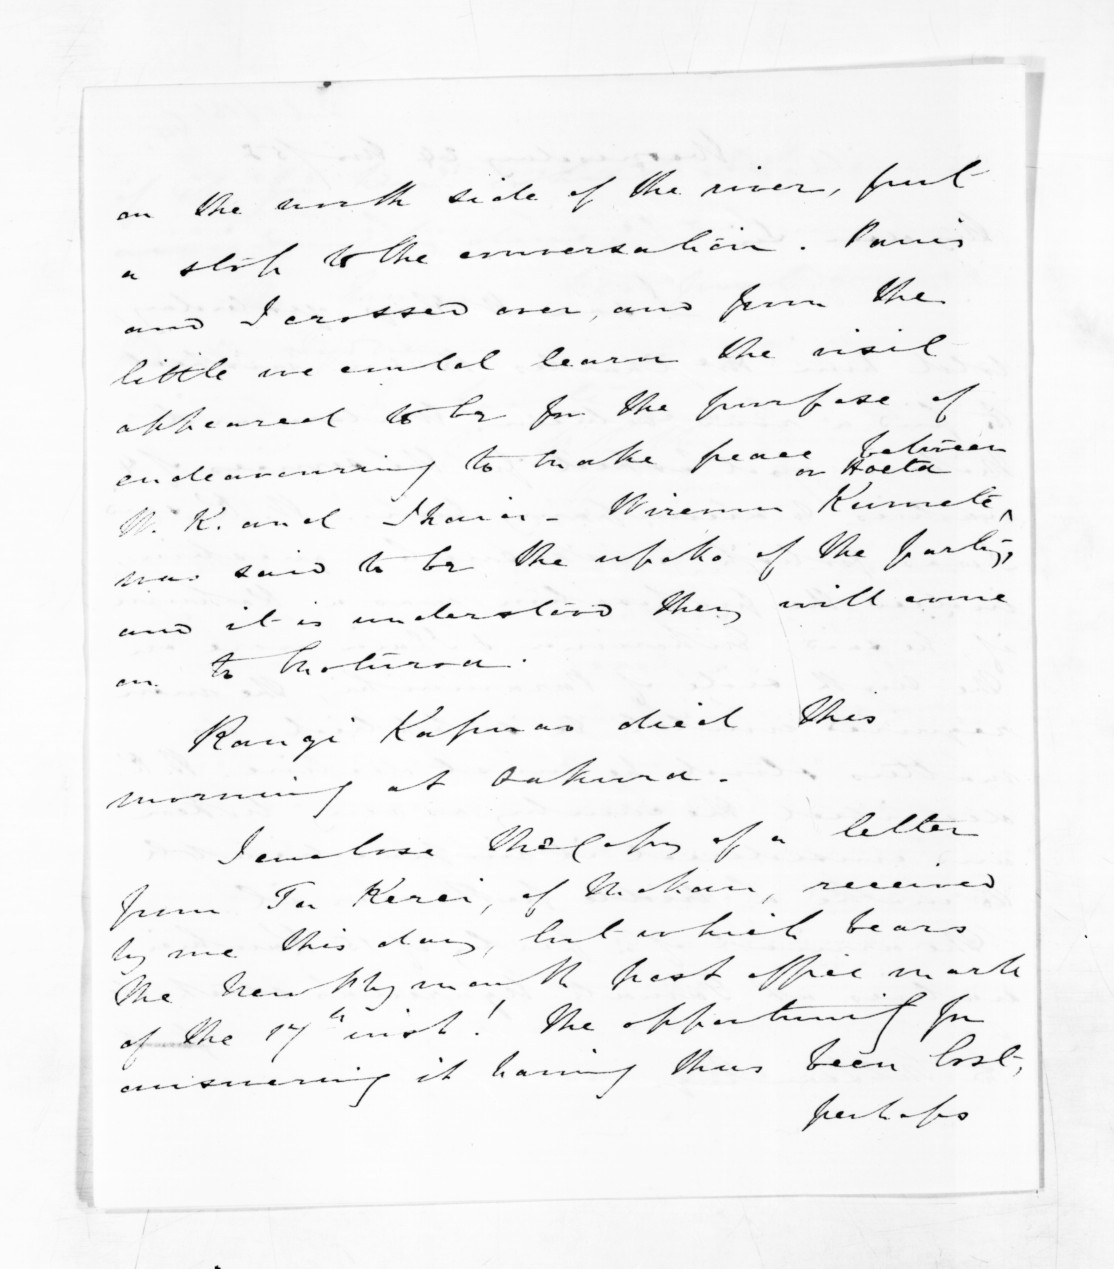 on the north side of the river, put
a stop to the conversation. Parris
and I crossed over, and from the
little we could learn the visit
appeared to be for the purpose of
endeavouring to make peace between
W. K. and Ihaia - Wiremu Kumete, or Hoeta
was said to be the upoko of the party,
and it is understood they will come
on to
Rangi died this
morning at Oakura.
I enclose the copy of a letter
from Te Kerei, of Mokau, received
by me this day, but which bears
the New Plymouth post office mark
of the 17th inst! The opportunity for
answering it having thus been lost,
perhaps